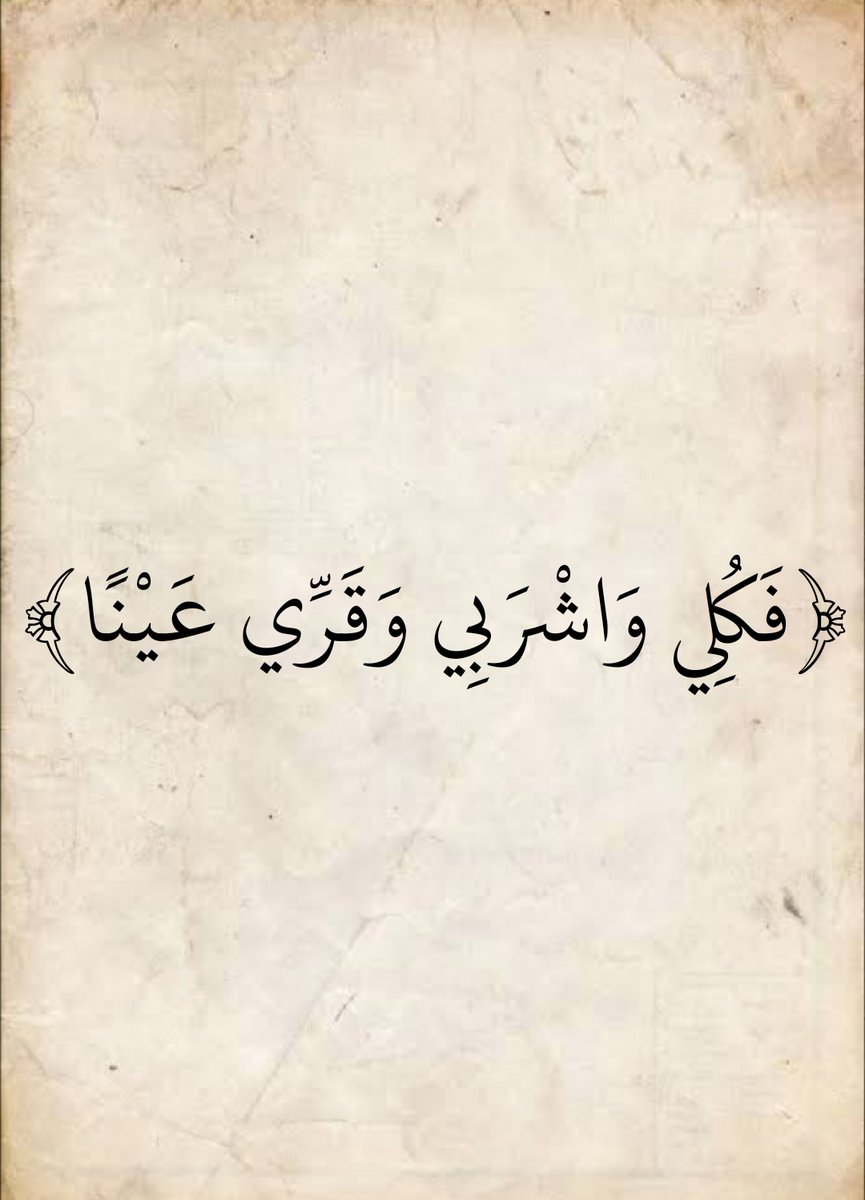 ﴿فَكُلِي وَاشْرَبِي وَقَرِّي عَيْنًا﴾